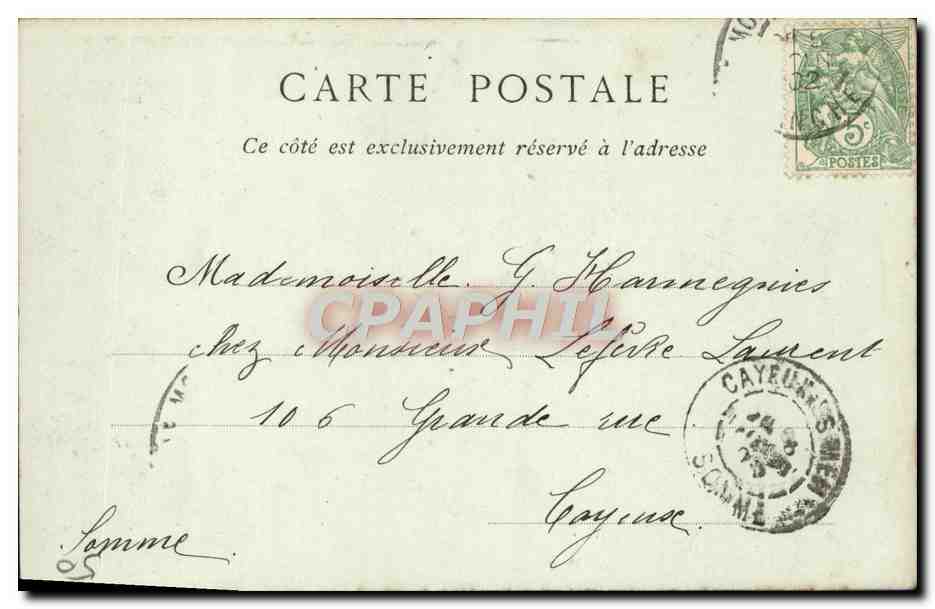 CARTE POSTALE
Ce côté est exclusivement réservé à l'adresse
5c
POSTES
Mademoiselle G. Harmegnies
CPAPHIL
chez Monsieur Lefèvre Laurent
106 Grande rue
CAYEUX-S-MER
SOMME
Cayeux.
Somme
50